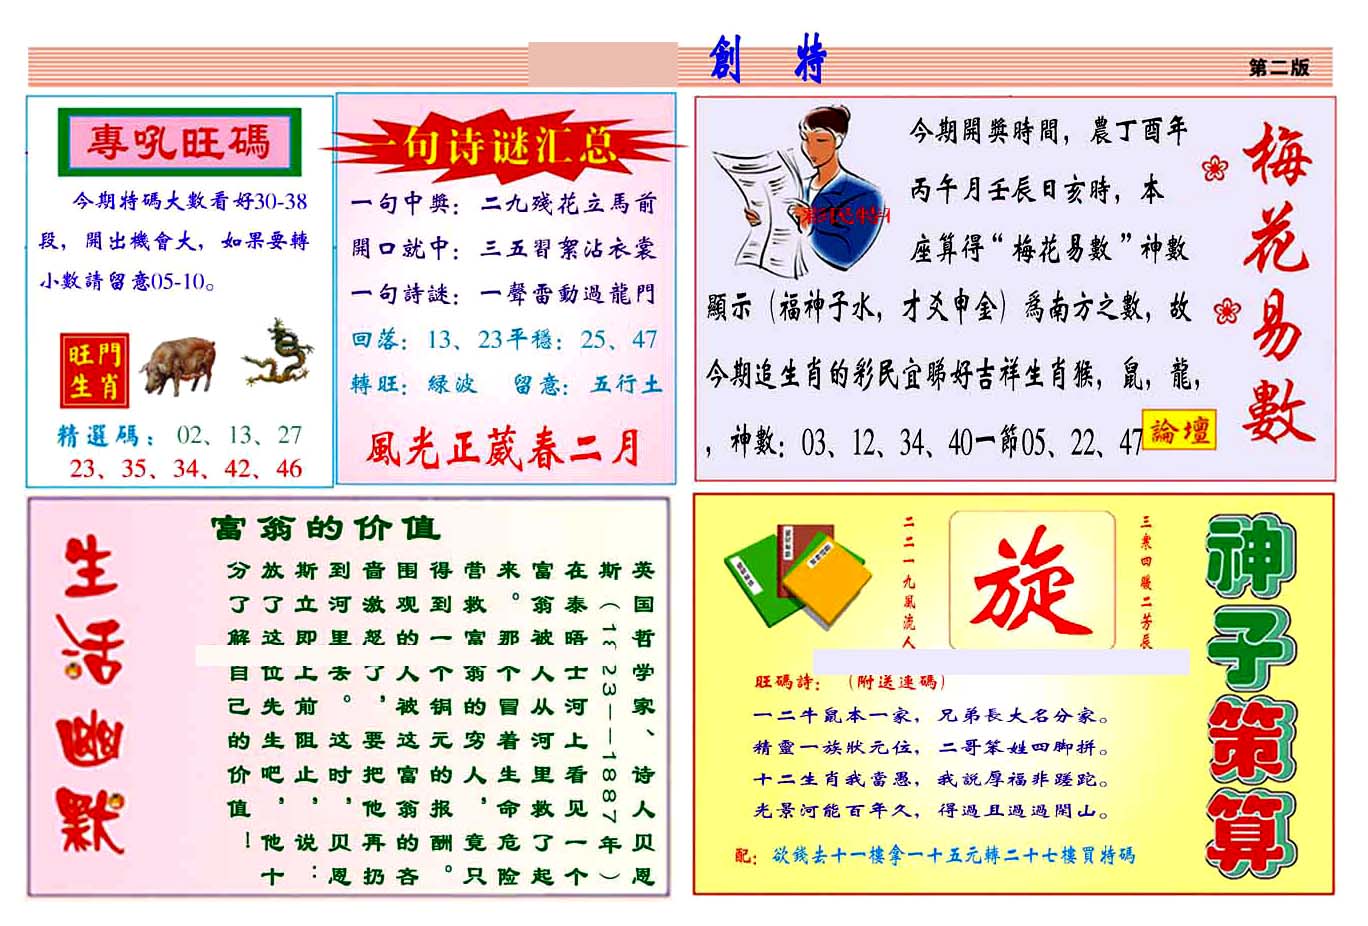 創 特
第二版
專吼旺碼
今期特碼大數看好30-38
段，開出機會大，如果要轉
小數請留意05-10。
旺門
生肖
精選碼：02、13、27
23、35、34、42、46
一句诗谜汇总
一句中獎：二九殘花立馬前
開口就中：三五習絮沾衣裳
一句詩謎：一聲雷動過龍門
回落：13、23平穩：25、47
轉旺：緑波 留意：五行土
風光正葳春二月
梅花易數
今期開獎時間，農丁酉年
丙午月壬辰日亥時，本
座算得“梅花易數”神數
顯示（福神子水，才爻申金）爲南方之數，故
今期追生肖的彩民宜睇好吉祥生肖猴，鼠，龍，
，神數：03、12、34、40一節05、22、47
論壇
生活幽默
富翁的价值
英国哲学家、诗人贝恩
斯（1823——1887年）
在泰晤士河上看见一个
富翁被人从河里救了起
来。那个冒着生命危险
营救富翁的穷人，竟只
得到一个铜元的报酬。
围观的人被这富翁的吝
啬激怒了，要把他再扔
到河里去。这时，贝恩
斯立即上前阻止，说：
放了这位先生吧，他十
分了解自己的价值！
神子策算
三衆四暖二芳辰
旋
二二一九風流人
旺碼詩：（附送連碼）
一二牛鼠本一家，兄弟長大名分家。
精靈一族狀元位，二哥笨姓四脚拼。
十二生肖我當愚，我説厚福非蹉跎。
光景河能百年久，得過且過過閑山。
配：欲錢去十一樓拿一十五元轉二十七樓買特碼